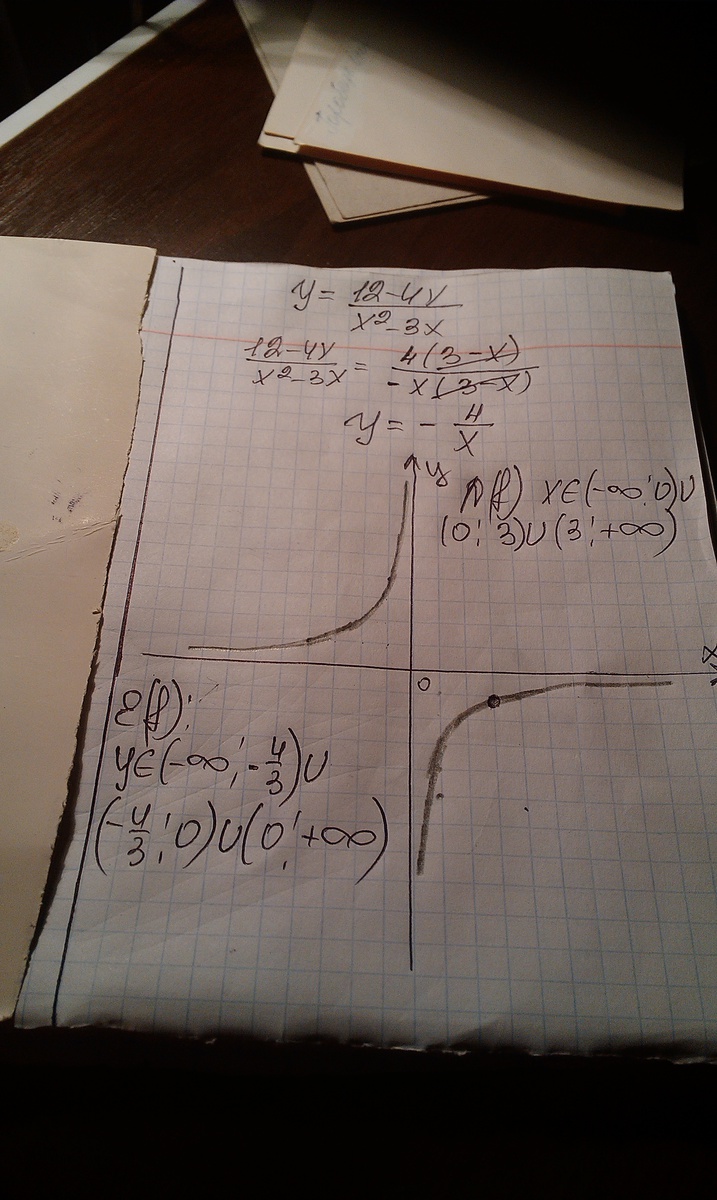 y = \frac{12-4x}{x^2-3x}
\frac{12-4x}{x^2-3x} = \frac{4(3-x)}{-x(3-x)}
y = - \frac{4}{x}
y
D(f) x∈(-∞; 0)∪
(0; 3)∪(3; +∞)
x
0
E(f):
y∈(-∞; -\frac{4}{3})∪
(-\frac{4}{3}; 0)∪(0; +∞)